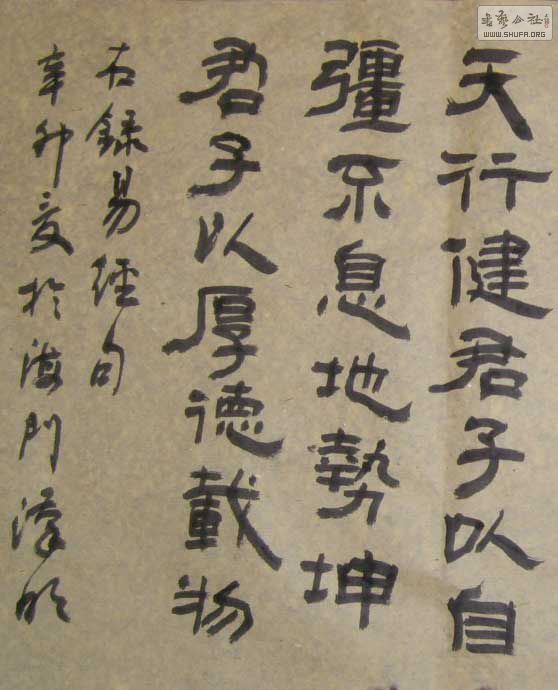 天行健君子以自
彊不息地勢坤
君子以厚德載物
右録易經句
辛卯夏於海門漢明
書藝公社
WWW.SHUFA.ORG